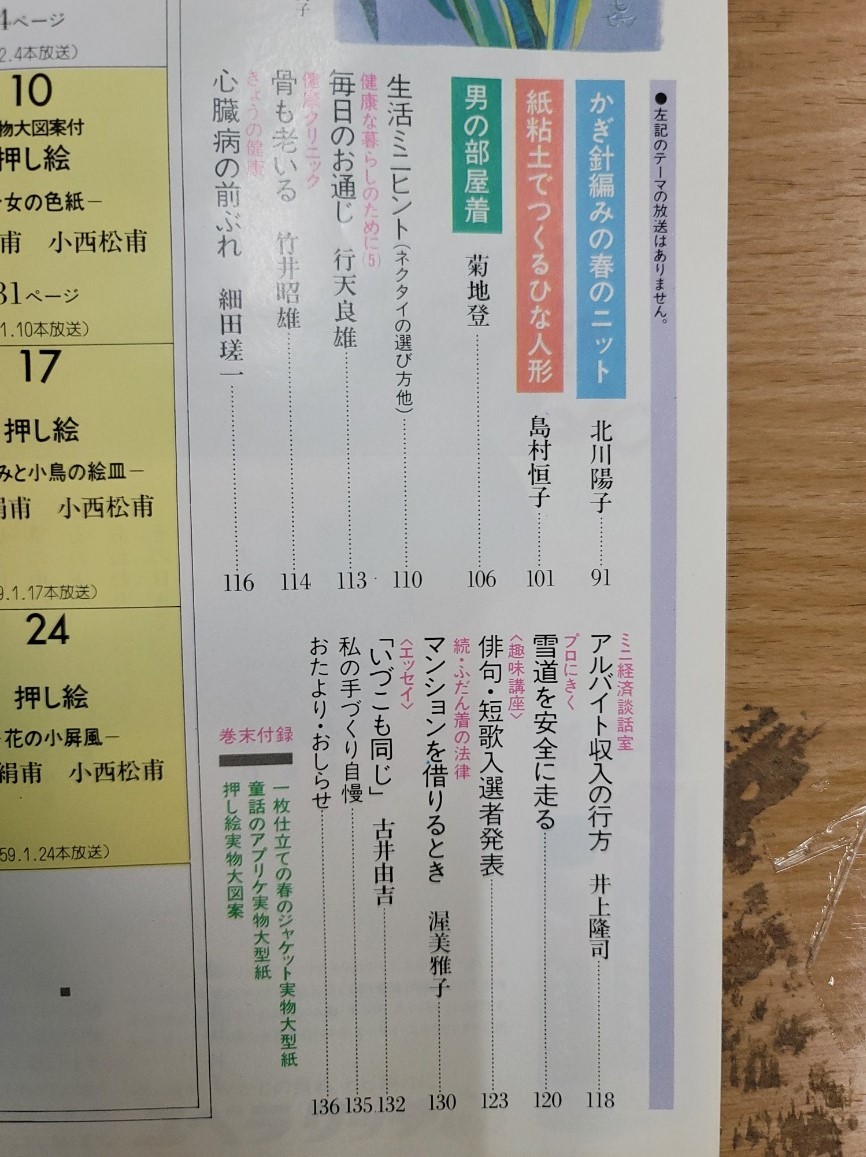 ●左記のテーマの放送はありません。
かぎ針編みの春のニット 北川陽子 91
紙粘土でつくるひな人形 島村恒子 101
男の部屋着 菊地登 106
生活ミニヒント(ネクタイの選び方他) 110
健康な暮らしのために(5)
毎日のお通じ 行天良雄 113
健康クリニック
骨も老いる 竹井昭雄 114
きょうの健康
心臓病の前ぶれ 細田瑳一 116
ミニ経済談話室
アルバイト収入の行方 井上隆司 118
プロにきく
雪道を安全に走る 120
〈趣味講座〉
俳句・短歌入選者発表 123
続・ふだん着の法律
マンションを借りるとき 渥美雅子 130
〈エッセイ〉
「いづこも同じ」 古井由吉 132
私の手づくり自慢 135
おたより・おしらせ 136
巻末付録
一枚仕立ての春のジャケット実物大型紙
童話のアプリケ実物大型紙
押し絵実物大図案
4ページ
2.4本放送)
10
物大図案付
押し絵
女の色紙―
甫 小西松甫
31ページ
1.10本放送)
17
押し絵
みと小鳥の絵皿―
絹甫 小西松甫
9.1.17本放送)
24
押し絵
花の小屏風―
絹甫 小西松甫
59.1.24本放送)
子